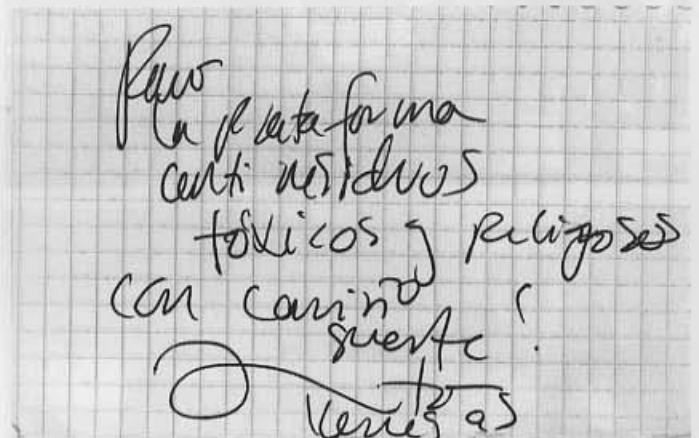 Para
la plataforma
anti residuos
tóxicos y peligrosos
con cariño
suerte!
Venegas